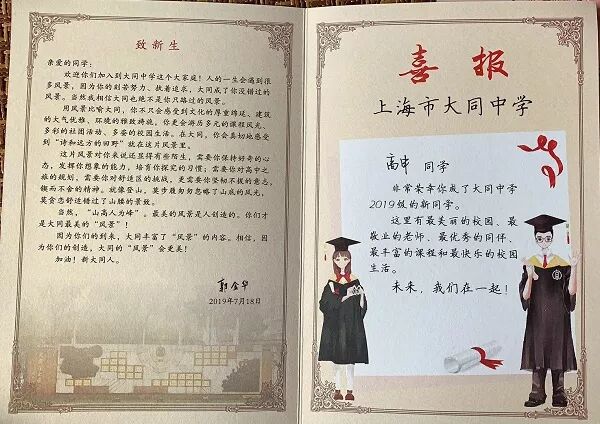 致新生
亲爱的同学：
欢迎你们加入到大同中学这个大家庭！人的一生会遇到很
多风景，因为你的刻苦努力、执着追求，大同成了你没错过的
风景。当然我相信大同也绝不是你只路过的风景。
用风景比喻大同，你不只会感受到文化的厚重绵延、建筑
的大气优雅、环境的雅致绮旎，你更会游历多元的课程风光、
多彩的社团活动、多姿的校园生活。在大同，你会真切地感受
到“诗和远方的田野”就在这片风景里。
这片风景对你来说还显得有些陌生，需要你保持好奇的心
态，发挥你想象的能力，培育你探究的习惯；需要你对高中之
旅的规划，需要你对舒适区的挑战，更需要你坚韧不拔的意志，
锲而不舍的精神。就像登山，莫步履匆匆忽略了山底的风光，
莫贪恋舒适错过了山腰的景致。
当然，“山高人为峰”。最美的风景是人创造的。你们才
是大同最美的“风景”！
因为你们的到来，大同丰富了“风景”的内容。相信，因
为你们的创造，大同的“风景”会更美！
加油！新大同人。
郭金华
2019年7月18日
喜报
上海市大同中学
高申 同学
非常荣幸你成了大同中学
2019级的新同学。
这里有最美丽的校园、最
敬业的老师、最优秀的同伴、
最丰富的课程和最快乐的校园
生活。
未来，我们在一起！